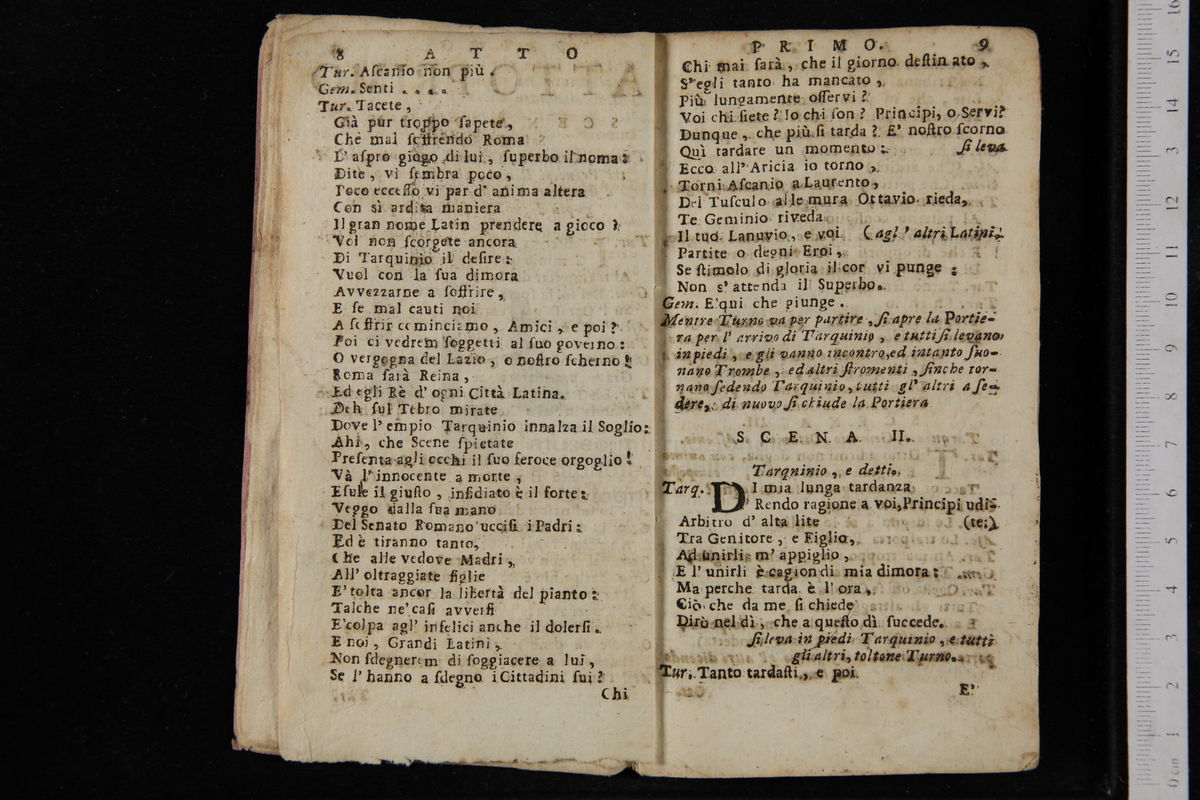 8 ATTO
Tur. Aſcanio non più.
Gem. Senti . . . .
Tur. Tacete,
Già pur troppo ſapete,
Che mal ſoffrendo Roma
L' aſpro giogo di lui, ſuperbo il noma:
Dite, vi ſembra poco,
Poco ecceſſo vi par d' anima altera
Con sì ardita maniera
Il gran nome Latin prendere a gioco?
Voi non ſcorgete ancora
Di Tarquinio il deſire:
Vuol con la ſua dimora
Avvezzarne a ſoffrire,
E ſe mal cauti noi
A ſoffrir cominciamo, Amici, e poi?
Poi ci vedrem ſoggetti al ſuo governo:
O vergogna del Lazio, o noſtro ſcherno!
Roma ſarà Reina,
Ed egli Rè d' ogni Città Latina.
Deh ſul Tebro mirate
Dove l' empio Tarquinio innalza il Soglio:
Ahi, che Scene ſpietate
Preſenta agli occhi il ſuo feroce orgoglio!
Và l' innocente a morte,
Eſule il giuſto, inſidiato è il forte:
Veggo dalla ſua mano
Del Senato Romano ucciſi i Padri:
Ed è tiranno tanto,
Che alle vedove Madri,
All' oltraggiate figlie
E' tolta ancor la libertà del pianto:
Talche ne' caſi avverſi
E' colpa agl' infelici anche il dolerſi.
E noi, Grandi Latini,
Non ſdegnerem di ſoggiacere a lui,
Se l' hanno a ſdegno i Cittadini ſui?
Chi
PRIMO. 9
Chi mai ſarà, che il giorno deſtinato,
S' egli tanto ha mancato,
Più lungamente oſſervi?
Voi chi ſiete? Io chi ſon? Principi, o Servi?
Dunque, che più ſi tarda? E' noſtro ſcorno
Quì tardare un momento: ſi leva
Ecco all' Aricia io torno,
Torni Aſcanio a Laurento,
Del Tuſculo alle mura Ottavio rieda,
Te Geminio riveda
Il tuo Lanuvio, e voi (agl' altri Latini,
Partite o degni Eroi,
Se ſtimolo di gloria il cor vi punge;
Non s' attenda il Superbo.
Gem. E' qui che giunge.
Mentre Turno va per partire, ſi apre la Portie-
ra per l' arrivo di Tarquinio, e tutti ſi levano
in piedi, e gli vanno incontro, ed intanto ſuo-
nano Trombe, ed altri ſtromenti, ſinche tor-
nano ſedendo Tarquinio, tutti gl' altri a ſe-
dere, di nuovo ſi chiude la Portiera
SCENA II.
Tarqninio, e detti.
Tarq. DI mia lunga tardanza
Rendo ragione a voi, Principi udi-
Arbitro d' alta lite (te;)
Tra Genitore, e Figlio,
Ad unirli m' appiglio,
E l' unirli è cagion di mia dimora:
Ma perche tarda è l' ora,
Ciò che da me ſi chiede
Dirò nel dì, che a queſto dì ſuccede.
ſi leva in piedi Tarquinio, e tutti
gli altri, toltone Turno.
Tur. Tanto tardaſti, e poi
E'
16
15
14
13
12
11
10
9
8
7
6
5
4
3
2
1
0 cm